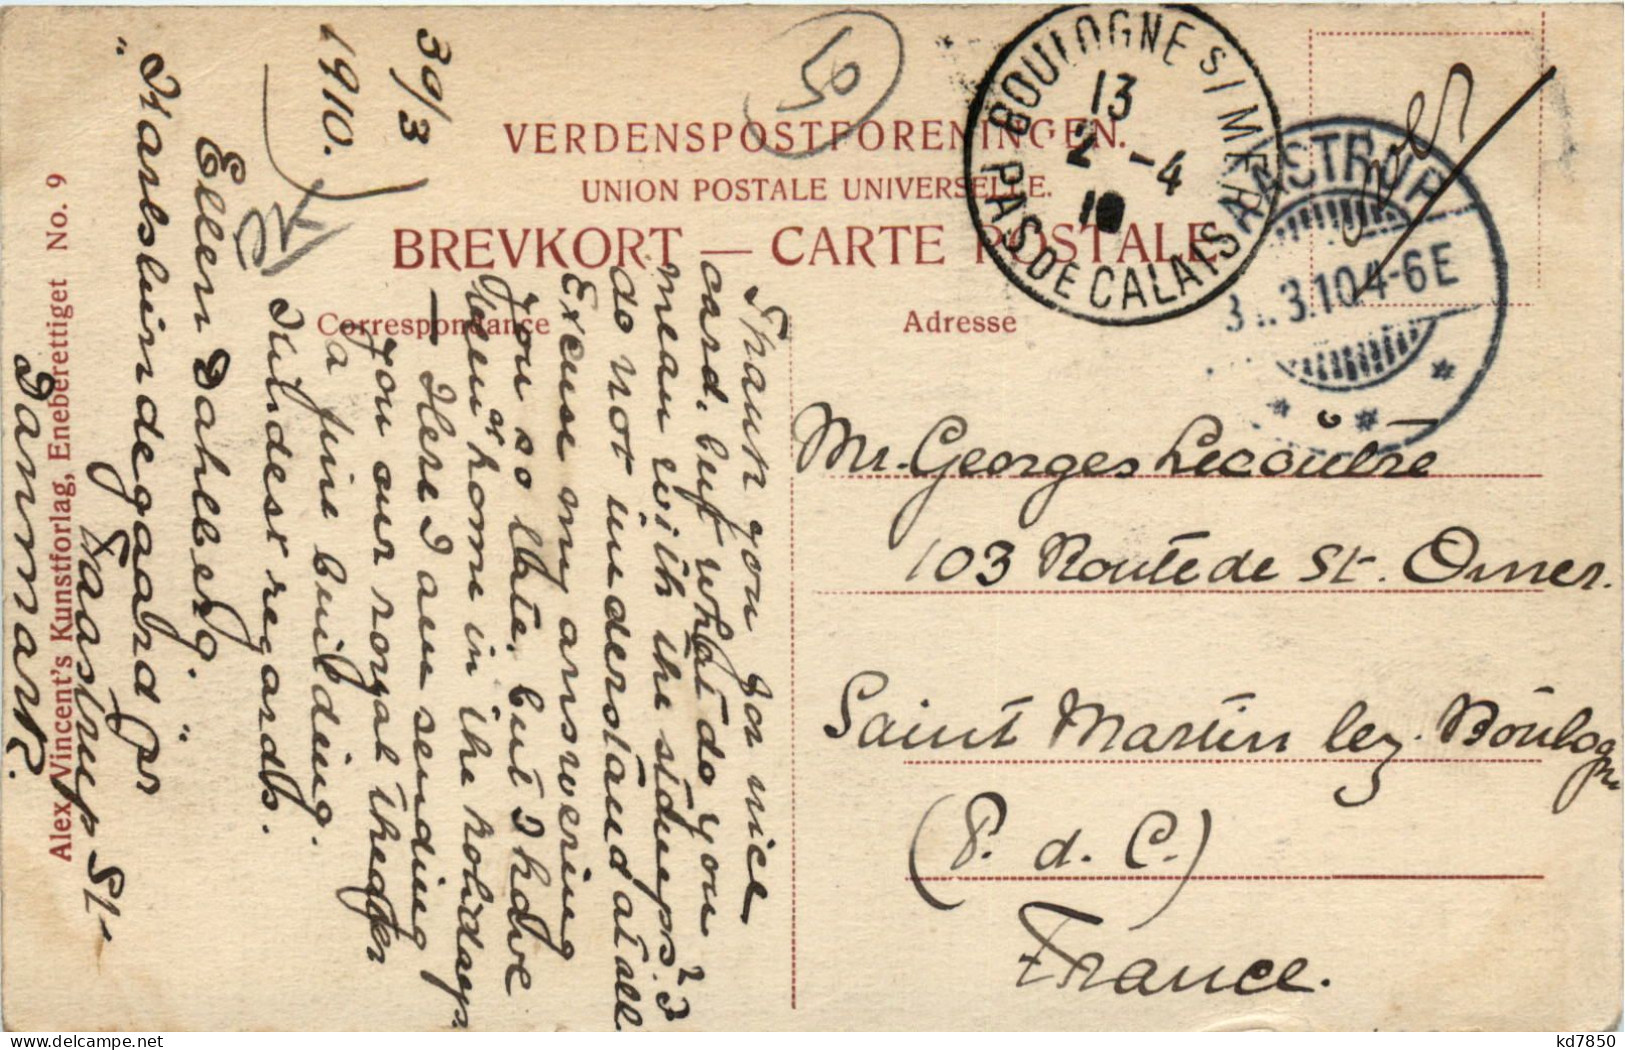 VERDENSPOSTFORENINGEN.
UNION POSTALE UNIVERSELLE.
BREVKORT — CARTE POSTALE
Correspondance
Adresse
Alex Vincent's Kunstforlag, Eneberetiget No. 9
BOULOGNE S/ MER
13
2 -4
10
PAS DE CALAIS
TAASTRUP
3.10 4-6 E
50
30/3
1910.
Thank you for nice
card, but what do you
mean with the
do not understand at all
Excuse my answering
you so late, but I have
been home in the holidays
— Here I am sending
you our royal theater
a fine building.
Kindest regards.
Ellen Dahlberg.
"Karlslundegaard" pr
Taastrup St.
Danmark.
Mr. Georges Lecoutre
103 Route de St. Omer.
Saint Martin lez. Boulogne
(P. d. C.)
France.
kd7850